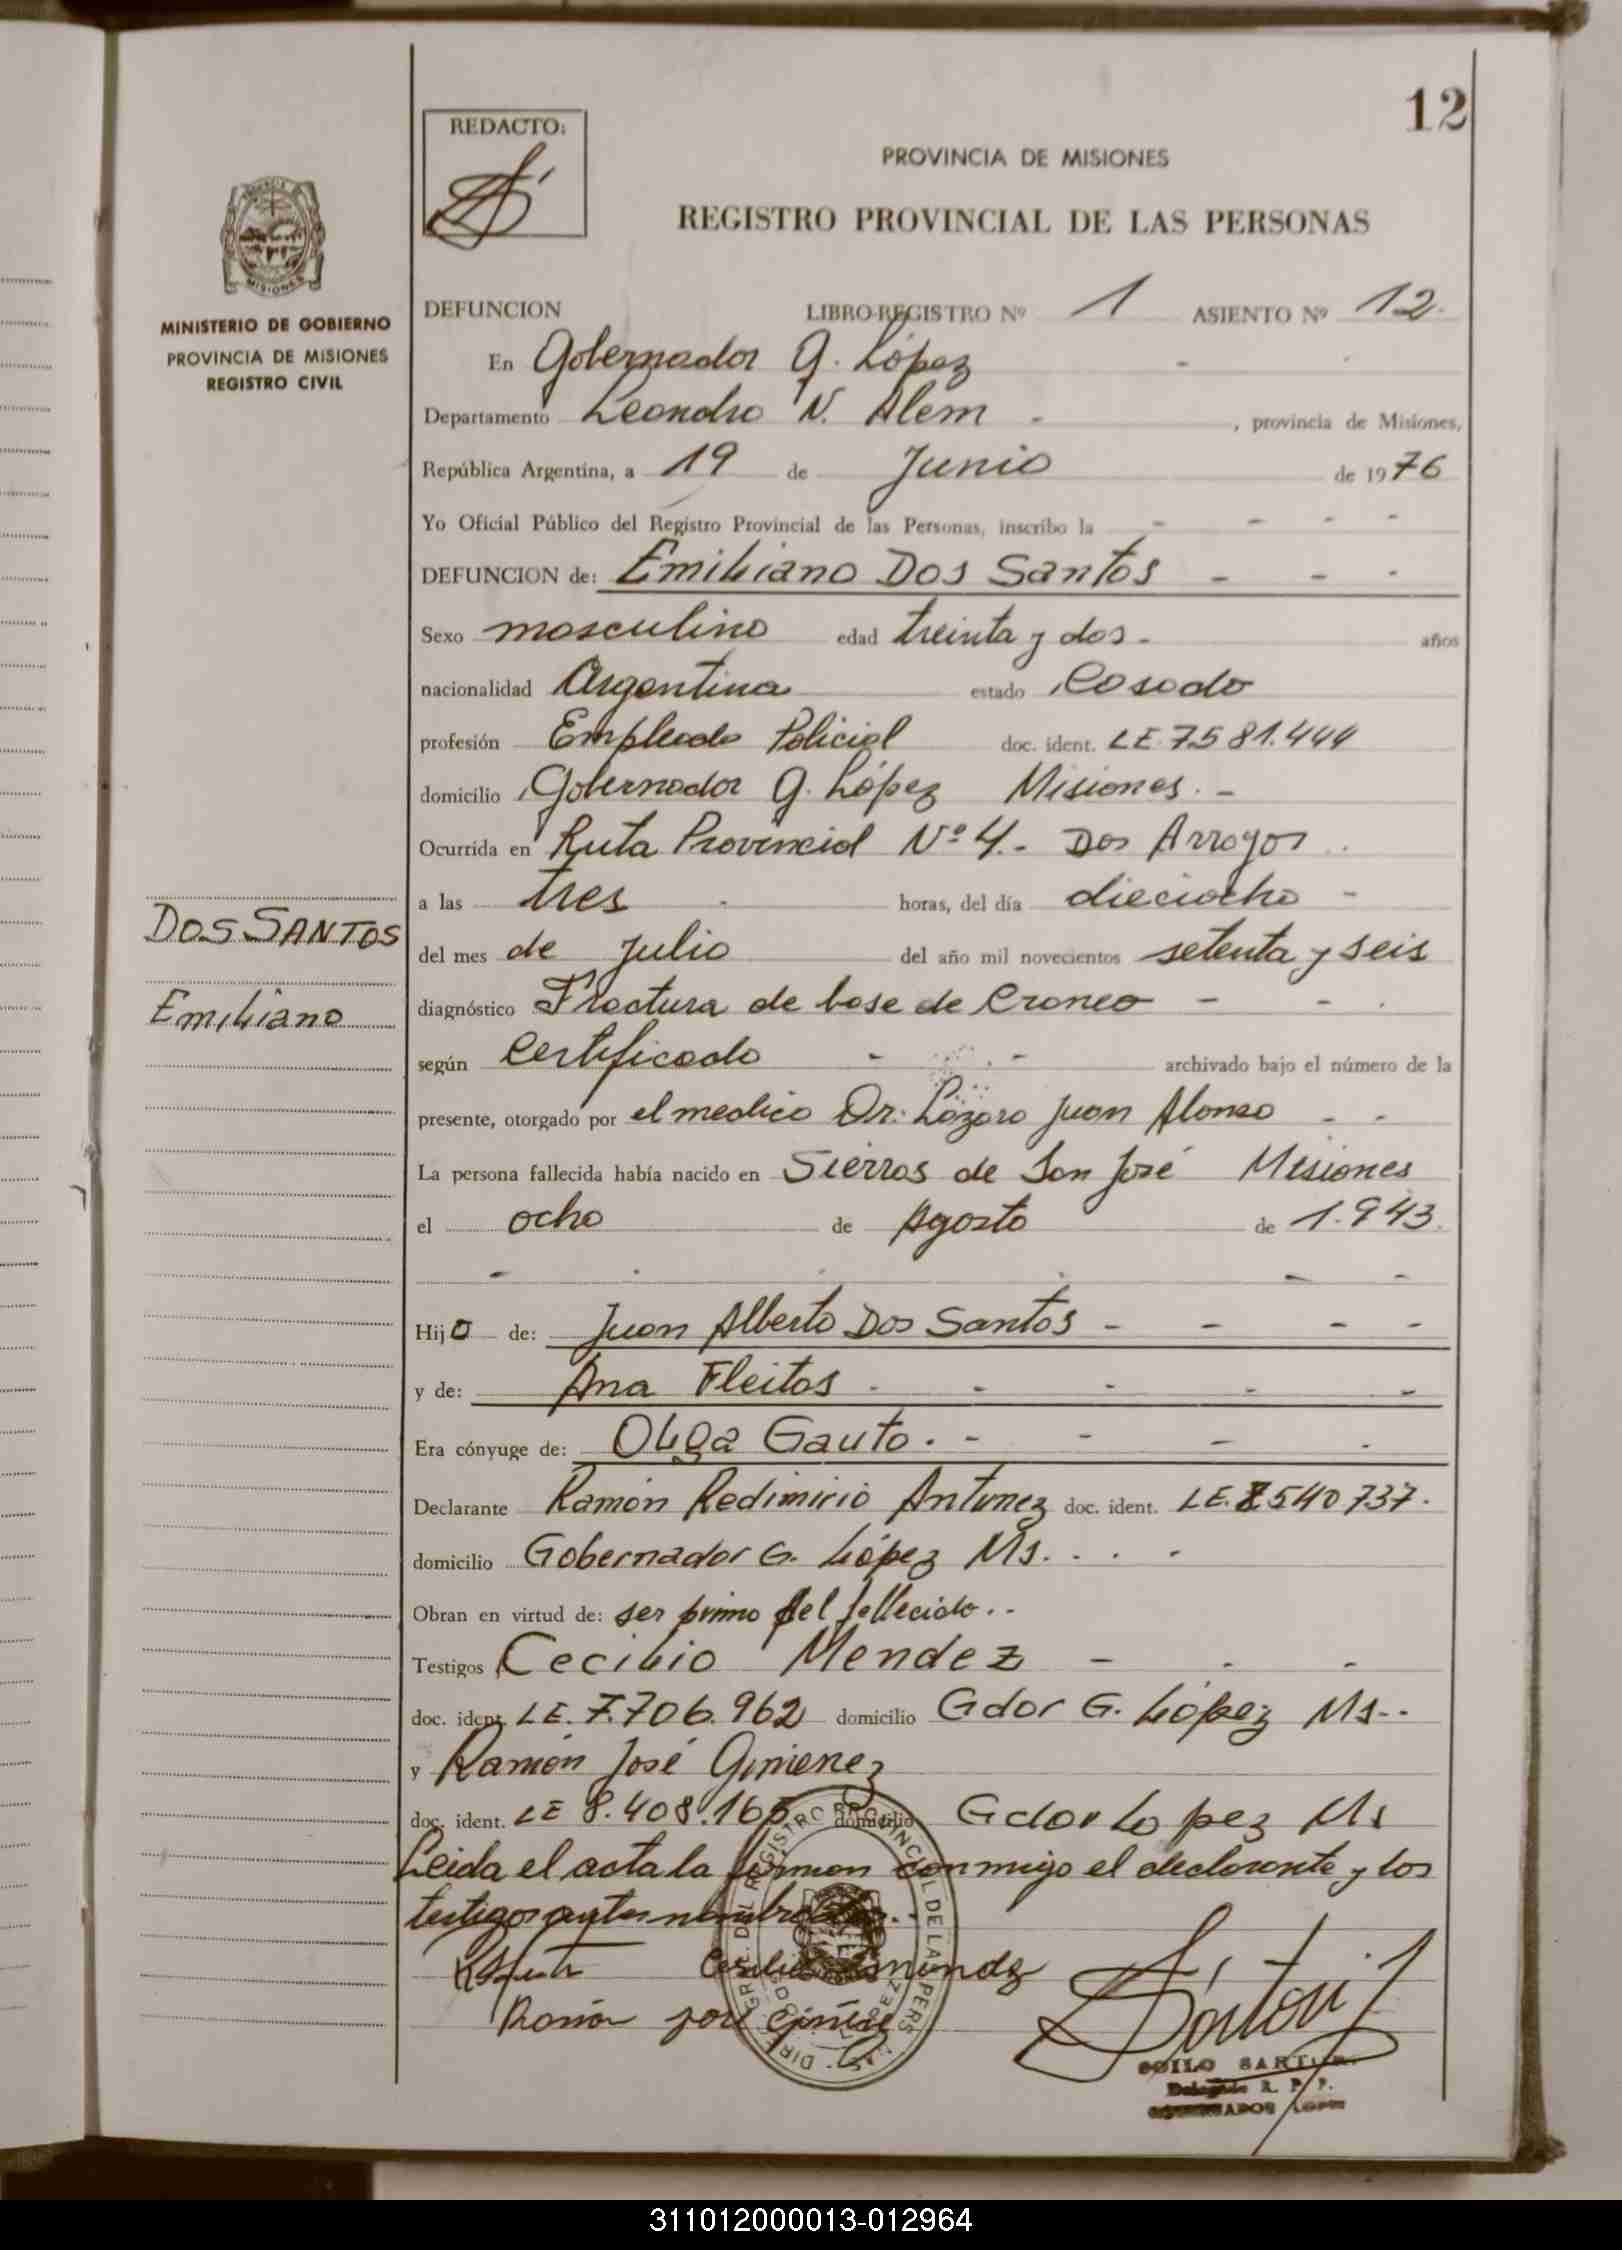 12
REDACTO:
PROVINCIA DE MISIONES
REGISTRO PROVINCIAL DE LAS PERSONAS
MISIONES
MINISTERIO DE GOBIERNO
PROVINCIA DE MISIONES
REGISTRO CIVIL
DEFUNCION LIBRO-REGISTRO Nº 1 ASIENTO Nº 12.
En Gobernador G. López -
Departamento Leandro N. Alem - , provincia de Misiones,
República Argentina, a 19 de Junio de 1976
Yo Oficial Público del Registro Provincial de las Personas, inscribo la - - - -
DEFUNCION de: Emiliano Dos Santos - - -
Sexo masculino edad treinta y dos - años
nacionalidad Argentina estado Casado
profesión Empleado Policial doc. ident. LE 7.581.444
domicilio Gobernador G. López Misiones. -
Ocurrida en Ruta Provincial Nº 4.- Dos Arroyos .
a las tres - horas, del día dieciocho -
DOS SANTOS
del mes de Julio del año mil novecientos setenta y seis
Emiliano
diagnóstico Fractura de base de Craneo - - .
según Certificado - - archivado bajo el número de la
presente, otorgado por el medico Dr. Lázaro Juan Alonso - -
La persona fallecida había nacido en Sierras de San José Misiones
el ocho de Agosto de 1.943.
Hijo de: Juan Alberto Dos Santos - - - -
y de: Ana Fleitas - - - - -
Era cónyuge de: Olga Gauto. - - - .
Declarante Ramón Redimirio Antunez doc. ident. LE. 7540737.
domicilio Gobernador G. López Ms. . . -
Obran en virtud de: ser primo del fallecido. . -
Testigos Cecilio Mendez - - -
doc. ident. LE. 7.706.962 domicilio Gdor G. López Ms - .
y Ramón José Gimenez
doc. ident. LE 8.408.165 domicilio Gdor Lopez Ms
Leida el acta la firman conmigo el declarante y los
testigos antes nombrados. -
Ramón José Giménez
SOILO SARTORI
Delegado R. P. P.
GOBERNADOR LOPEZ
311012000013-012964